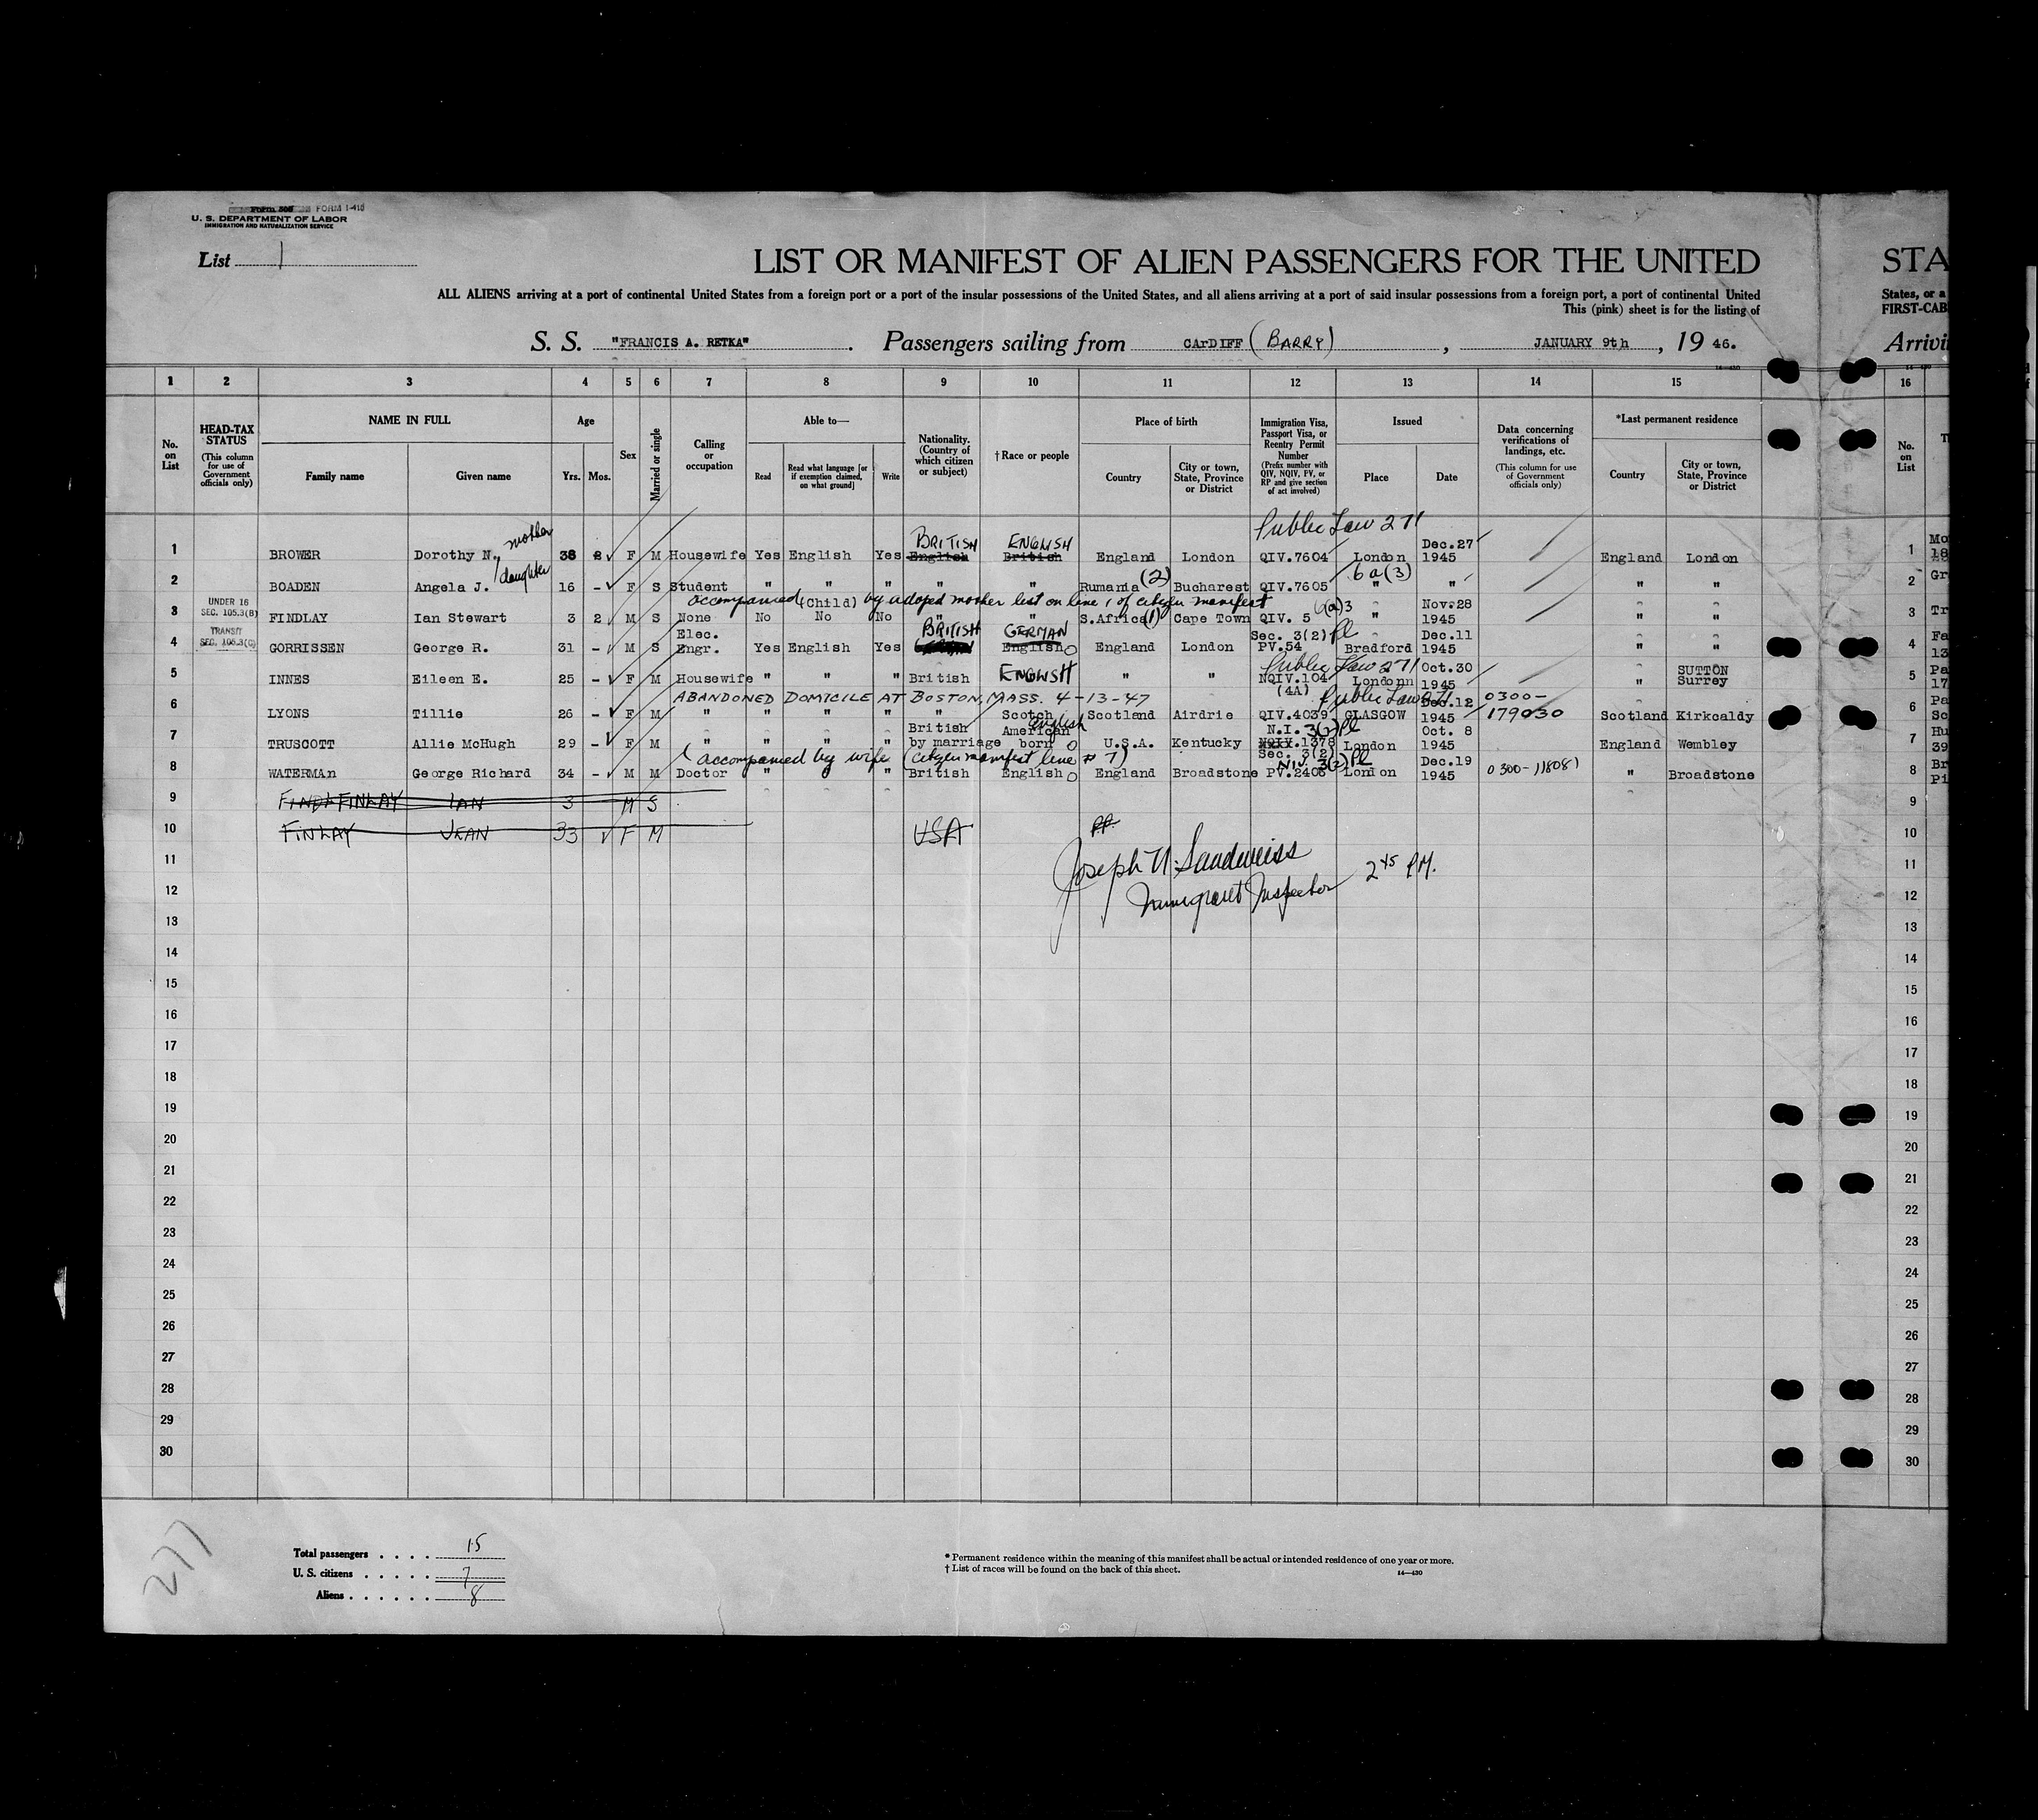 Form 500 FORM I-415
U. S. DEPARTMENT OF LABOR
IMMIGRATION AND NATURALIZATION SERVICE
List 1
LIST OR MANIFEST OF ALIEN PASSENGERS FOR THE UNITED
STA
ALL ALIENS arriving at a port of continental United States from a foreign port or a port of the insular possessions of the United States, and all aliens arriving at a port of said insular possessions from a foreign port, a port of continental United
States, or a
This (pink) sheet is for the listing of
FIRST-CAB
S. S. "FRANCIS A. RETKA". Passengers sailing from CArDIFF (BARRY), JANUARY 9th, 19 46.
Arrivi
14-430
1 2 3 4 5 6 7 8 9 10 11 12 13 14 15 16
No. on List
HEAD-TAX STATUS (This column for use of Government officials only)
NAME IN FULL
Family name Given name
Age
Yrs. Mos.
Sex
Married or single
Calling or occupation
Able to—
Read Read what language [or if exemption claimed, on what ground] Write
Nationality. (Country of which citizen or subject)
†Race or people
Place of birth
Country City or town, State, Province or District
Immigration Visa, Passport Visa, or Reentry Permit Number (Prefix number with QIV, NQIV, FV, or RP and give section of act involved)
Issued
Place Date
Data concerning verifications of landings, etc. (This column for use of Government officials only)
*Last permanent residence
Country City or town, State, Province or District
No. on List
Public Law 271
mother BRITISH ENGLISH Dec.27
1 BROWER Dorothy N. 38 2 F M Housewife Yes English Yes English British England London QIV.7604 London 1945 England London 1 Mo 18
daughter (2) 6a(3)
2 BOADEN Angela J. 16 - F S Student " " " " " Rumania Bucharest QIV.7605 " " " " 2 Gr
accompanied (Child) by adoped mother list on line 1 of citizen manifest
UNDER 16 SEC. 105.3(B) 6(a)3 Nov.28
3 FINDLAY Ian Stewart 3 2 M S None No No No " " S.Africa (1) Cape Town QIV. 5 " 1945 " " 3 Tr
TRANSIT SEC. 105.3(C) Elec. BRITISH GERMAN Sec. 3(2) Pl Dec.11
4 GORRISSEN George R. 31 - M S Engr. Yes English Yes English England London PV.54 Bradford 1945 " " 4 Fa 13
ENGLISH Public Law 271 Oct.30 SUTTON
5 INNES Eileen E. 25 - F M Housewife " " " British " " NQIV.104 Londonn 1945 " Surrey 5 Pa 17
ABANDONED DOMICILE AT BOSTON, MASS. 4-13-47 (4A) Public Law 271 Dec.12 0300-
6 LYONS Tillie 26 - F M " " " " " Scotch Scotland Airdrie QIV.4039 GLASGOW 1945 179030 Scotland Kirkcaldy 6 Pa Sc
British American English N.I. 3(2) Pl Oct. 8
7 TRUSCOTT Allie McHugh 29 - F M " " " " by marriage born U.S.A. Kentucky NQIV.1378 London 1945 England Wembley 7 Hu 39
(accompanied by wife (citizen manifest line # 7) Sec. 3(2) NIV. 3(2) Pl Dec.19
8 WATERMAn George Richard 34 - M M Doctor " " " British English England Broadstone PV.2405 London 1945 0300-118081 " Broadstone 8 Br Pi
9 FINDL FINLAY IAN 3 M S 9
10 FINLAY JEAN 33 F M USA 10
11 Joseph N. Sandweiss 2 45 P.M. 11
12 Immigrant Inspector 12
13 13
14 14
15 15
16 16
17 17
18 18
19 19
20 20
21 21
22 22
23 23
24 24
25 25
26 26
27 27
28 28
29 29
30 30
277
Total passengers . . . . 15
U. S. citizens . . . . . 7
Aliens . . . . . . 8
* Permanent residence within the meaning of this manifest shall be actual or intended residence of one year or more.
† List of races will be found on the back of this sheet.
14-430